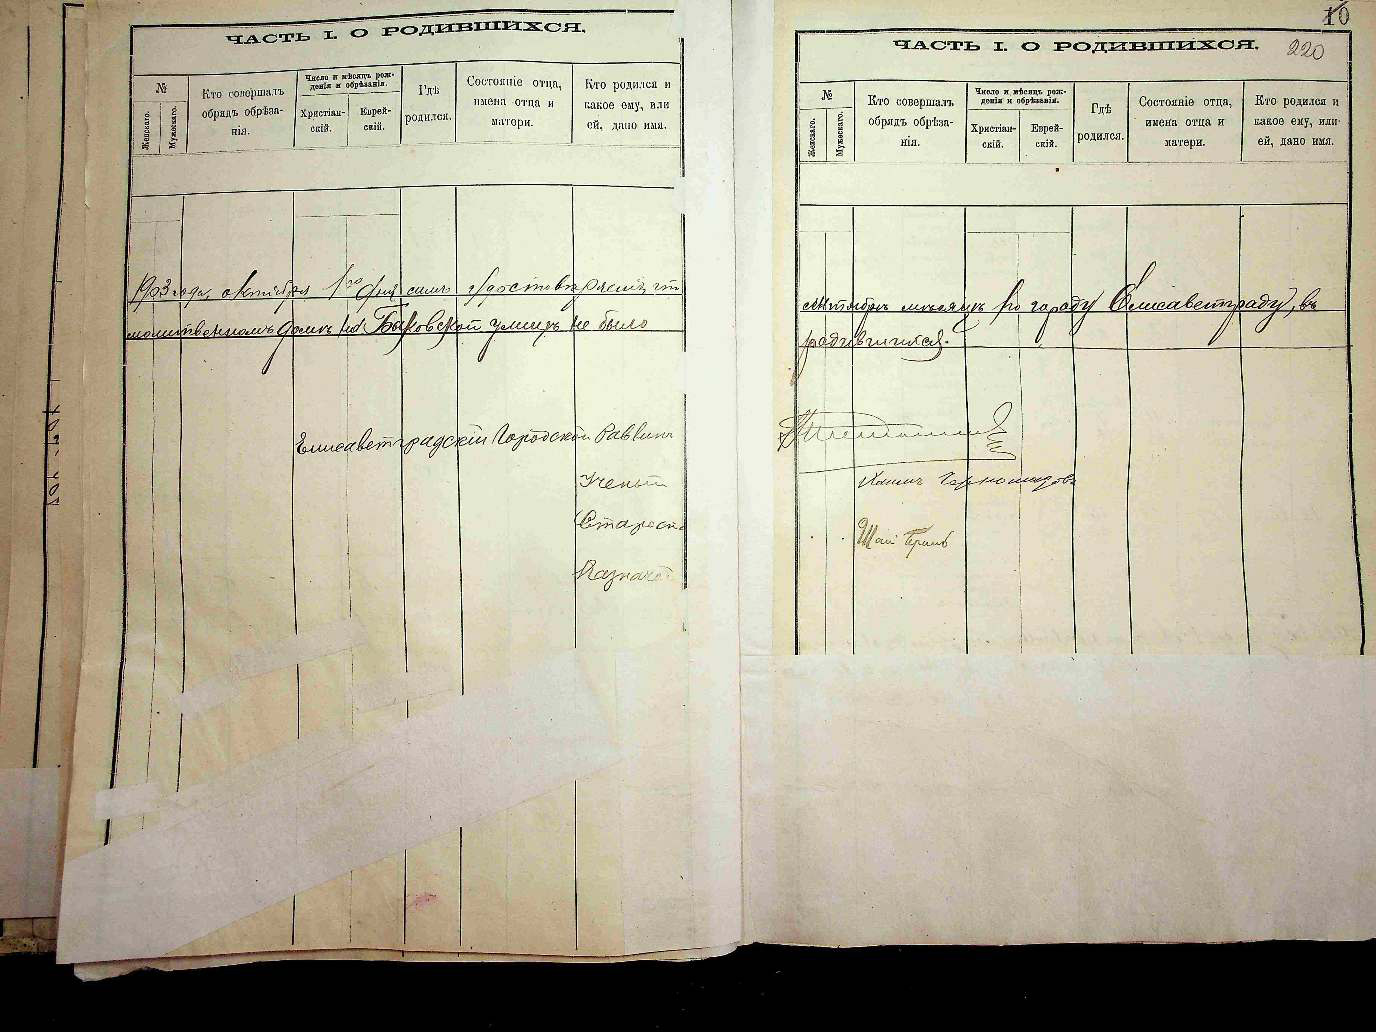 ЧАСТЬ I. О РОДИВШИХСЯ.
№
Женскаго.
Мужскаго.
Кто совершалъ
обрядъ обрѣза-
нія.
Число и мѣсяцъ рож-
денія и обрѣзанія.
Христіан-
скій.
Еврей-
скій.
Гдѣ
родился.
Состояніе отца,
имена отца и
матери.
Кто родился и
какое ему, или
ей, дано имя.
1903 года, октября 1го дня симъ удостовѣряемъ, что
молитвенномъ домѣ на Быковской улицѣ не было
Елисаветградскій Городской Раввинъ
Ученый
Староста
Казначей
10
220
ЧАСТЬ I. О РОДИВШИХСЯ.
№
Женскаго.
Мужескаго.
Кто совершалъ
обрядъ обрѣза-
нія.
Число и мѣсяцъ рож-
денія и обрѣзанія.
Христіан-
скій.
Еврей-
скій.
Гдѣ
родился.
Состояніе отца,
имена отца и
матери.
Кто родился и
какое ему, или
ей, дано имя.
сентябрѣ мѣсяцѣ по городу Елисаветграду, въ
родившихся.